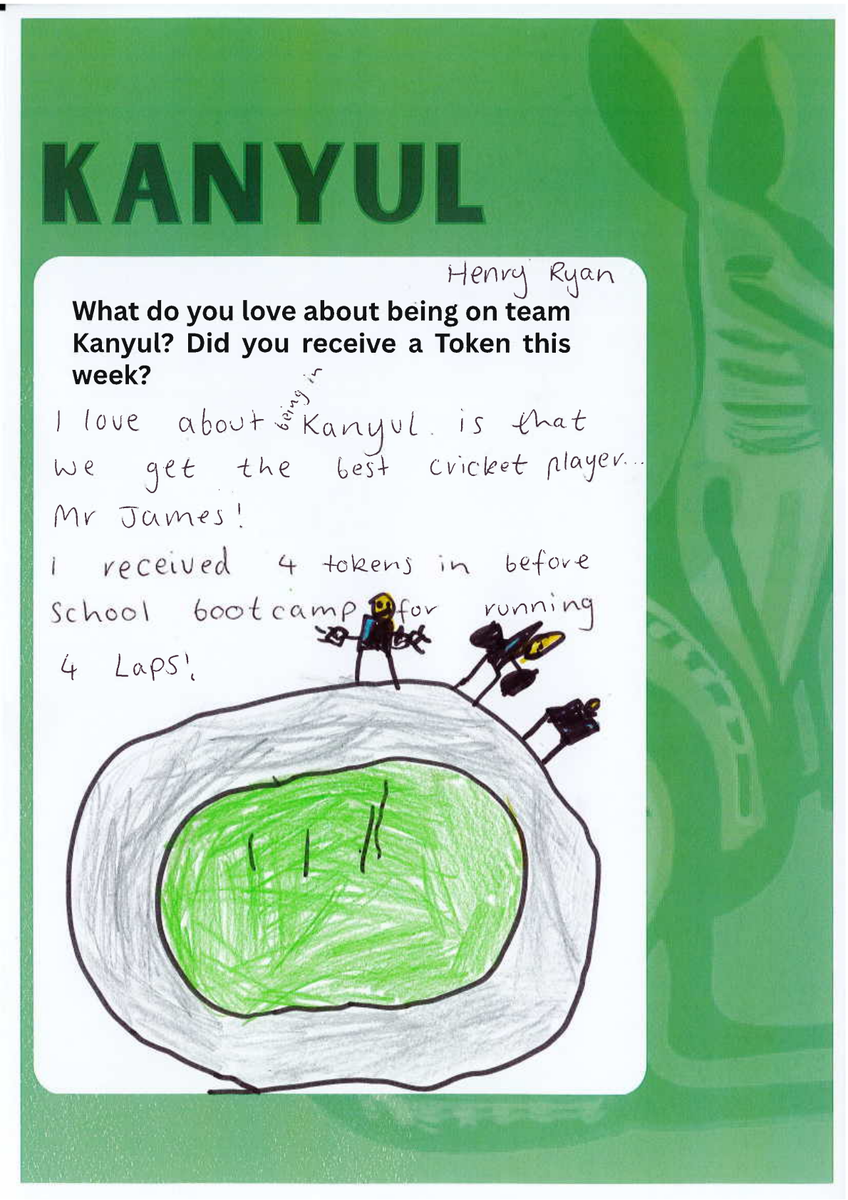 KANYUL
Henry Ryan
What do you love about being on team
Kanyul? Did you receive a Token this
week?
I love about being in Kanyul. is that
we get the best cricket player...
Mr James!
I received 4 tokens in before
school bootcamp for running
4 Laps!